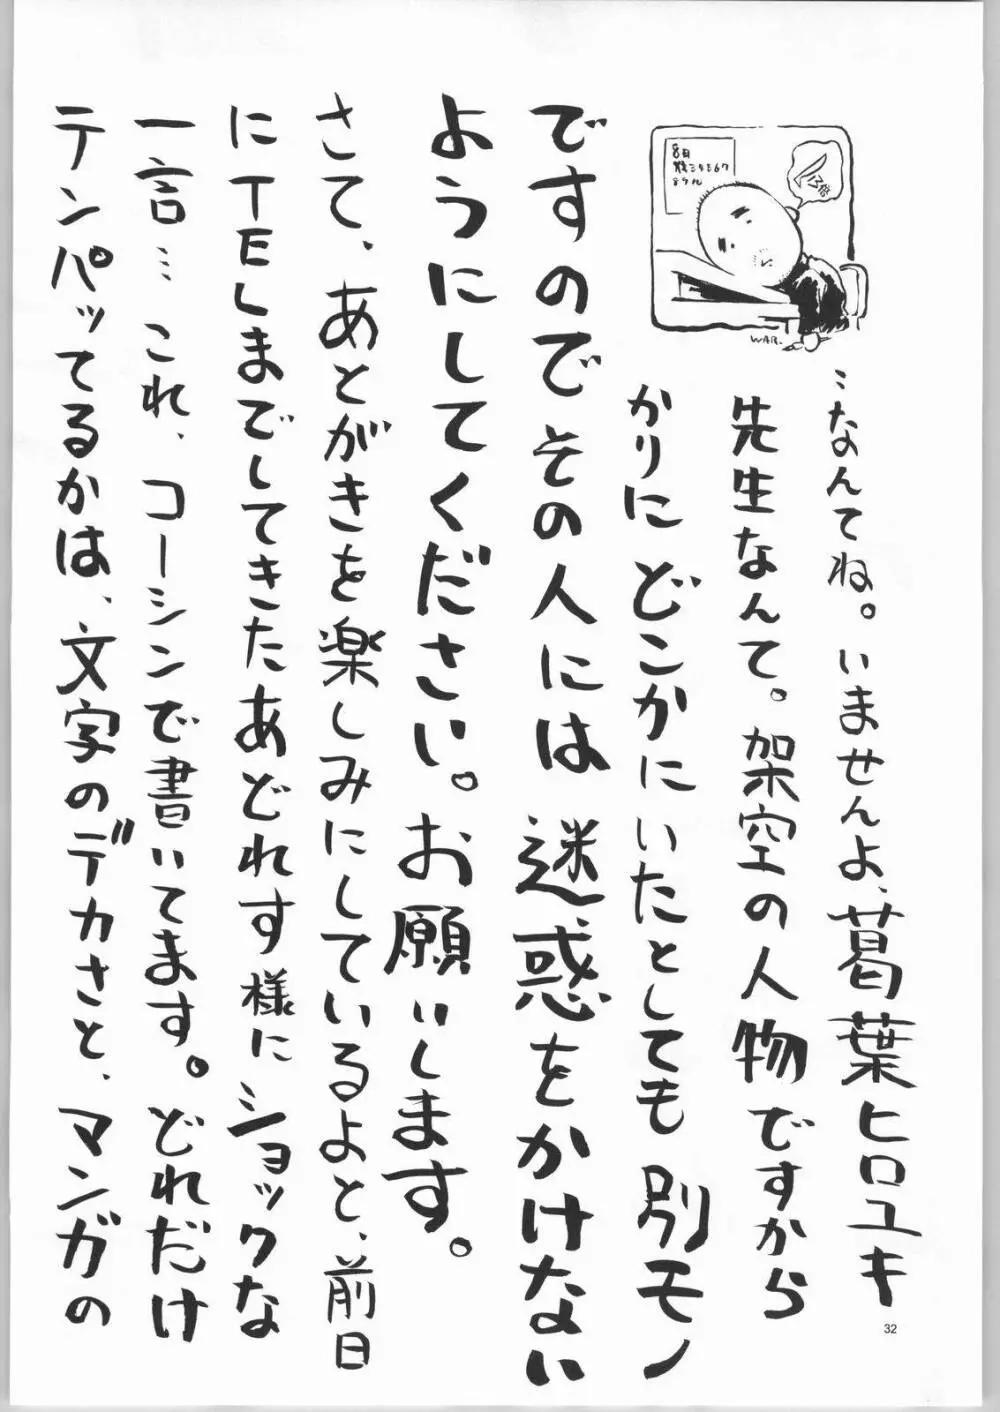 …なんてね。いませんよ、葛葉ヒロユキ
先生なんて。架空の人物ですから
かりにどこかにいたとしても別モノ
ですのでその人には迷惑をかけない
ようにしてください。お願いします。
さて、あとがきを楽しみにしているよと、前日
にTELまでしてきたあどれす様にショックな
一言… これ、コーシンで書いてます。どれだけ
テンパッてるかは、文字のデカさと、マンガの
WAR.
32